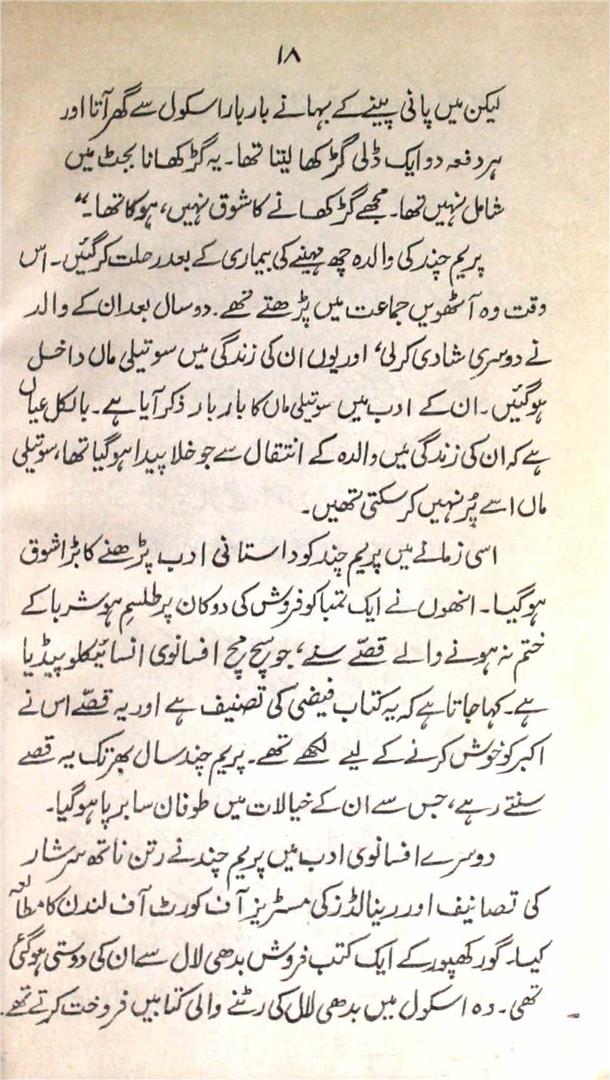 ۱۸
لیکن میں پانی پینے کے بہانے بار بار اسکول سے گھر آتا اور
ہر دفعہ دو ایک ڈلی گڑ کھا لیتا تھا۔ یہ گڑ کھانا بجٹ میں
شامل نہیں تھا۔ مجھے گڑ کھانے کا شوق نہیں، ہوکا تھا۔"
پریم چند کی والدہ چھ مہینے کی بیماری کے بعد رحلت کر گئیں۔ اس
وقت وہ آٹھویں جماعت میں پڑھتے تھے۔ دو سال بعد ان کے والد
نے دوسری شادی کر لی، اور یوں ان کی زندگی میں سوتیلی ماں داخل
ہو گئیں۔ ان کے ادب میں سوتیلی ماں کا بار بار ذکر آیا ہے۔ بالکل عیاں
ہے کہ ان کی زندگی میں والدہ کے انتقال سے جو خلا پیدا ہو گیا تھا، سوتیلی
ماں اسے پُر نہیں کر سکتی تھیں۔
اسی زمانے میں پریم چند کو داستانی ادب پڑھنے کا بڑا شوق
ہو گیا۔ انھوں نے ایک تمباکو فروش کی دوکان پر طلسم ہوشربا کے
ختم نہ ہونے والے قصّے سنے، جو سچ مچ افسانوی انسائیکلوپیڈیا
ہے۔ کہا جاتا ہے کہ یہ کتاب فیضی کی تصنیف ہے اور یہ قصّے اس نے
اکبر کو خوش کرنے کے لیے لکھے تھے۔ پریم چند سال بھر تک یہ قصے
سنتے رہے، جس سے ان کے خیالات میں طوفان سا برپا ہو گیا۔
دوسرے افسانوی ادب میں پریم چند نے رتن ناتھ سرشار
کی تصانیف اور رینالڈز کی مسٹریز آف کورٹ آف لندن کا مطالعہ
کیا۔ گورکھپور کے ایک کتب فروش بدھی لال سے ان کی دوستی ہو گئی
تھی۔ وہ اسکول میں بدھی لال کی رٹنے والی کتابیں فروخت کرتے تھے۔